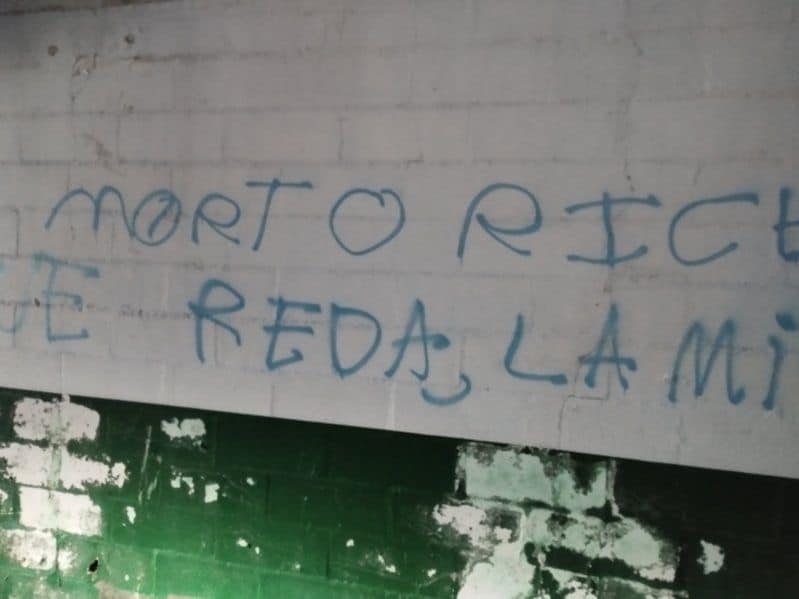 MORTO RICE
UE REDA, LA Mi